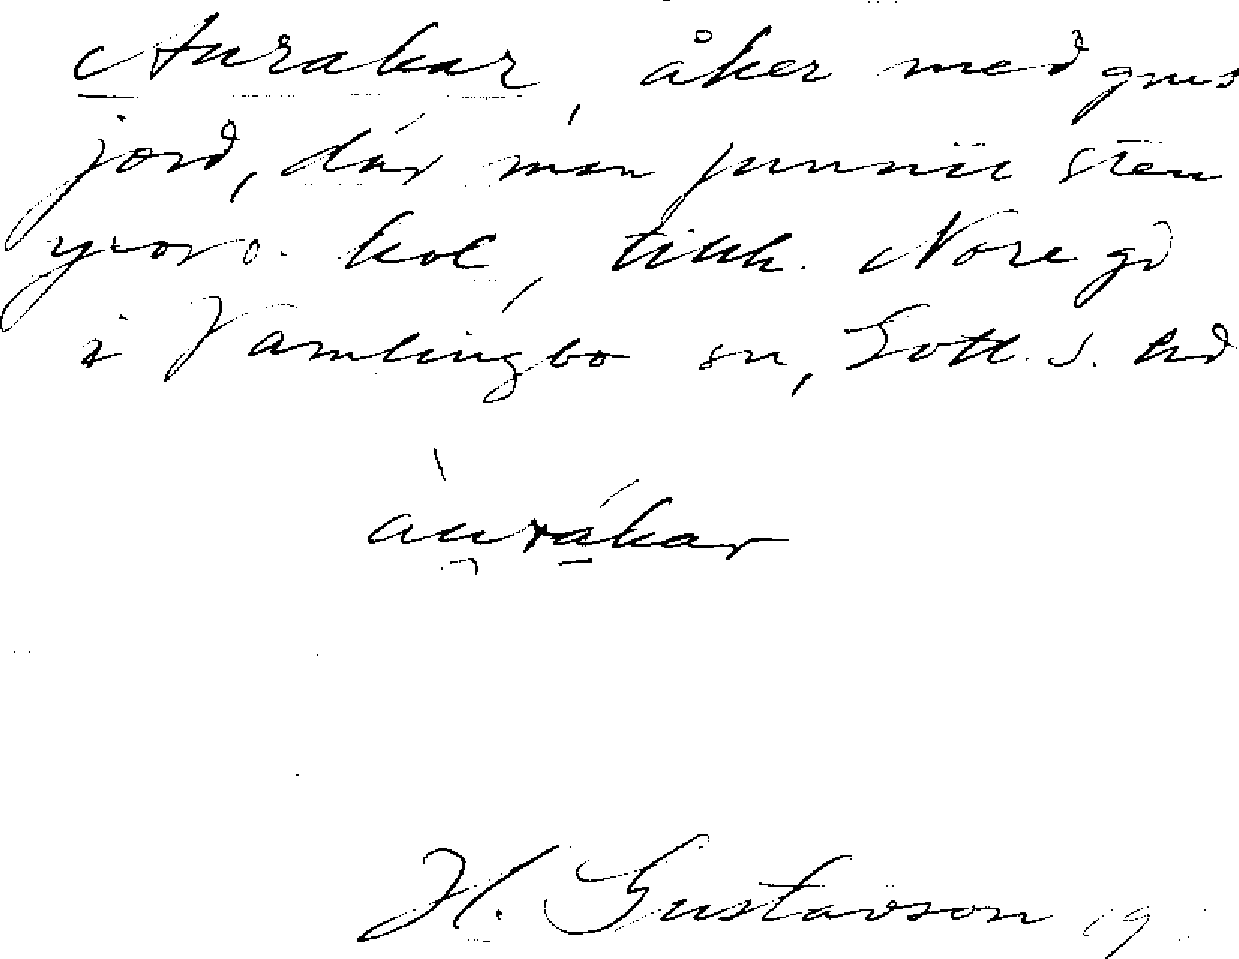 Aurakar, åker med grus
jord, där man funnit sten
grav o. kol, tillh. Nore gd
i Vamlingbo sn, Gotl. S. hd
aurákar
H. Gustavson 19